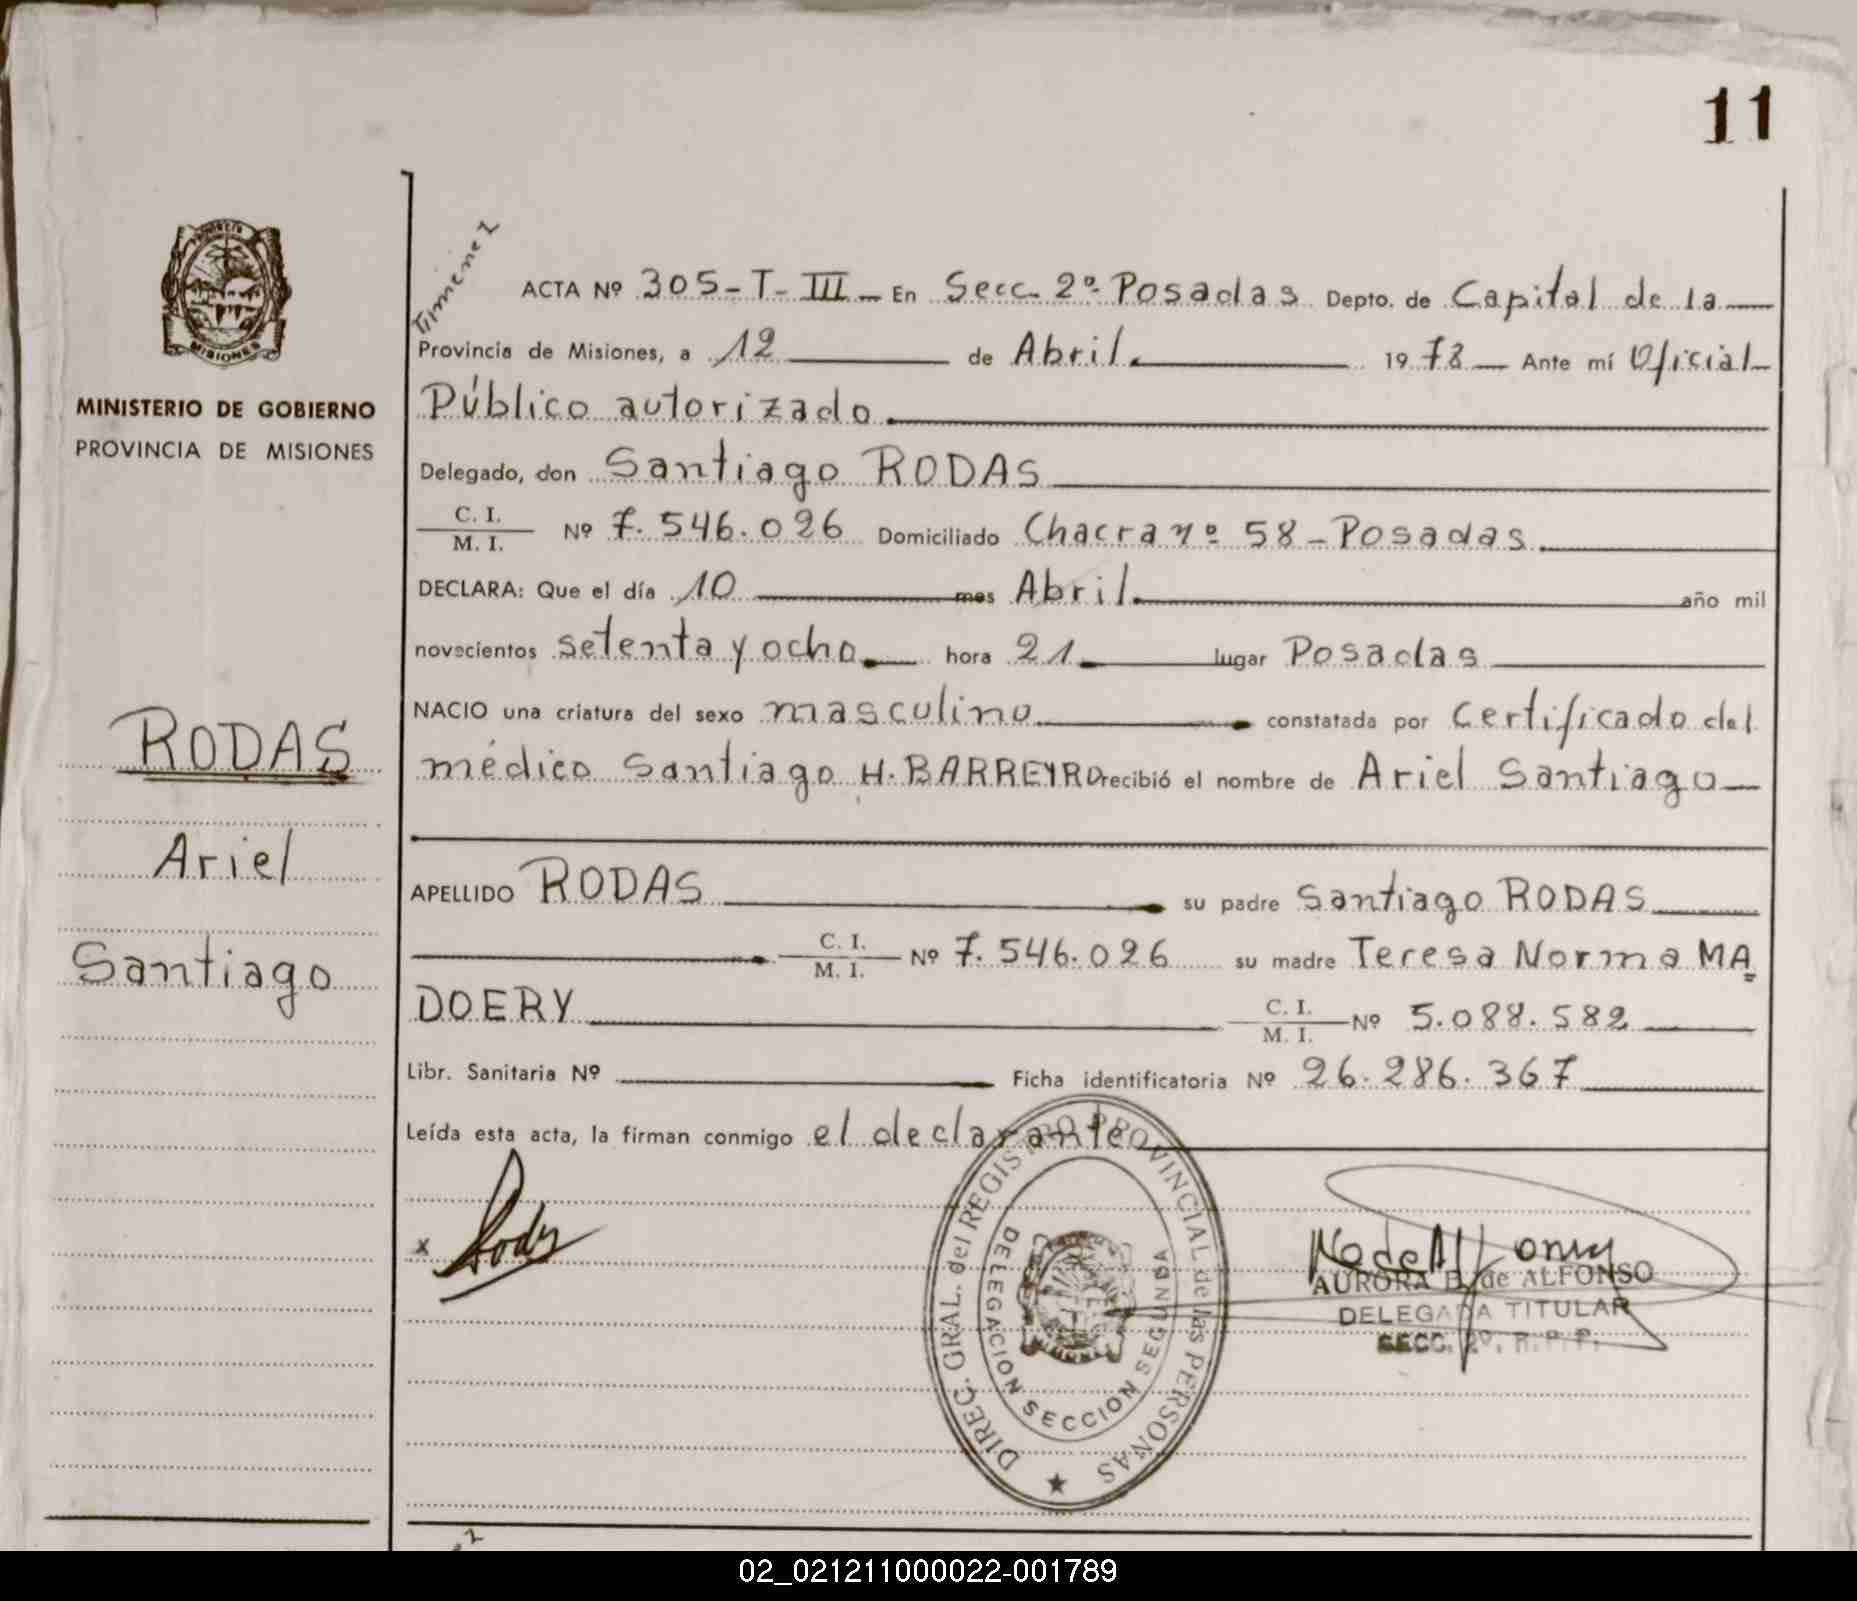 11
Jimenez
PROVINCIA
MISIONES
MINISTERIO DE GOBIERNO
PROVINCIA DE MISIONES
RODAS
Ariel
Santiago
ACTA Nº 305-T-III - En Secc. 2º Posadas Depto. de Capital de la
Provincia de Misiones, a 12 de Abril. 1978 Ante mí Oficial
Público autorizado.
Delegado, don Santiago RODAS
C. I.
M. I. Nº 7.546.026 Domiciliado Chacra nº 58 - Posadas.
DECLARA: Que el día 10 mes Abril. año mil
novecientos setenta y ocho hora 21 lugar Posadas
NACIO una criatura del sexo masculino constatada por Certificado del
médico Santiago H. BARREYRO recibió el nombre de Ariel Santiago
APELLIDO RODAS su padre Santiago RODAS
C. I.
M. I. Nº 7.546.026 su madre Teresa Norma MA
DOERY C. I.
M. I. Nº 5.088.582
Libr. Sanitaria Nº Ficha identificatoria Nº 26.286.367
Leída esta acta, la firman conmigo el declarante
x Rodas
DIREC. GRAL. del REGISTRO PROVINCIAL de las PERSONAS
DELEGACION SECCION SEGUNDA
AURORA B. de ALFONSO
DELEGADA TITULAR
SECC. 2º. R.P.P.
02_021211000022-001789